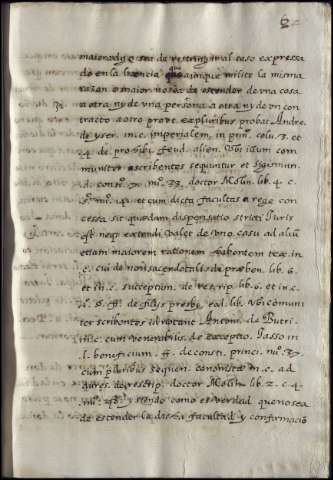 maioradgo sea de restringir al caso expressa
do en la licencia que aunque milite la misma
razon o maior no sea de estender de una cosa
a otra ny de una persona a otra ny de un con
tracto a otro prout ex pluribus probat Andre.
de yser. in c. imperialem, in prin. colu. 3. et
4. de prohibi. feud. alien. ubi illum com
muniter scribentes sequuntur et sigismun.
doctor Molin. lib. 4. c.
et cum dicta facultas a rege con
cessa sit quædam dispensatio stricti Juris
est neqs extendi valet de uno casu ad aliū
etiam maiorem rationem habentem tex. in
c. cui de non sacerdotalis de præben. lib. 6.
et in c. susceptum. de rescrip. lib. 6. et in c.
de filijs presby. eod. lib. ubi comuni
ter scribentes idē notant Anton. de Butri.
in c. cum venerabilis de exceptio. Jasso in
l. beneficium. ff. de consti. princi. nu. 37
cum pluribus sequen. canonistæ in c. ad
aures. de rescrip. doctor Molin. lib. 2. c. 4.
y siendo como es verdad que no sea
de estender la dicha facultad y confirmació